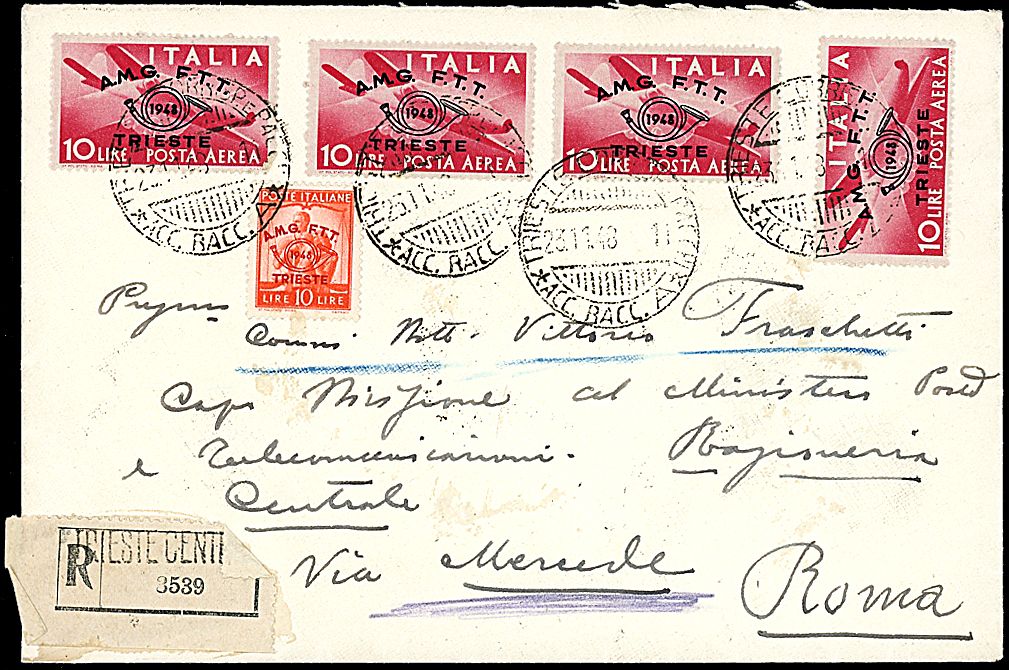 ITALIA
A.M.G. F.T.T.
1948
TRIESTE
10 LIRE POSTA AEREA
ITALIA
A.M.G. F.T.T.
1948
TRIESTE
10 LIRE POSTA AEREA
ITALIA
A.M.G. F.T.T.
1948
TRIESTE
10 LIRE POSTA AEREA
ITALIA
A.M.G. F.T.T.
1948
TRIESTE
10 LIRE POSTA AEREA
POSTE ITALIANE
A.M.G. F.T.T.
1948
TRIESTE
LIRE 10 LIRE
*ACC. RACC. A*
*ACC. RACC.
TRIESTE
23.11.48 11
*ACC. RACC. A*
TRIESTE
*ACC. RACC.
Vittorio Fraschetti
Capo Missione al Ministero
e Telecomunicazioni. Ragioneria
Centrale
Via Mercede
Roma
R TRIESTE CENT
3539